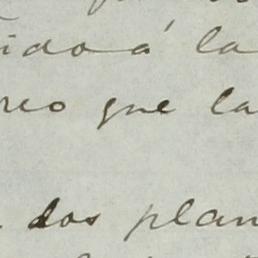 ido á la
reo que la
dos plan